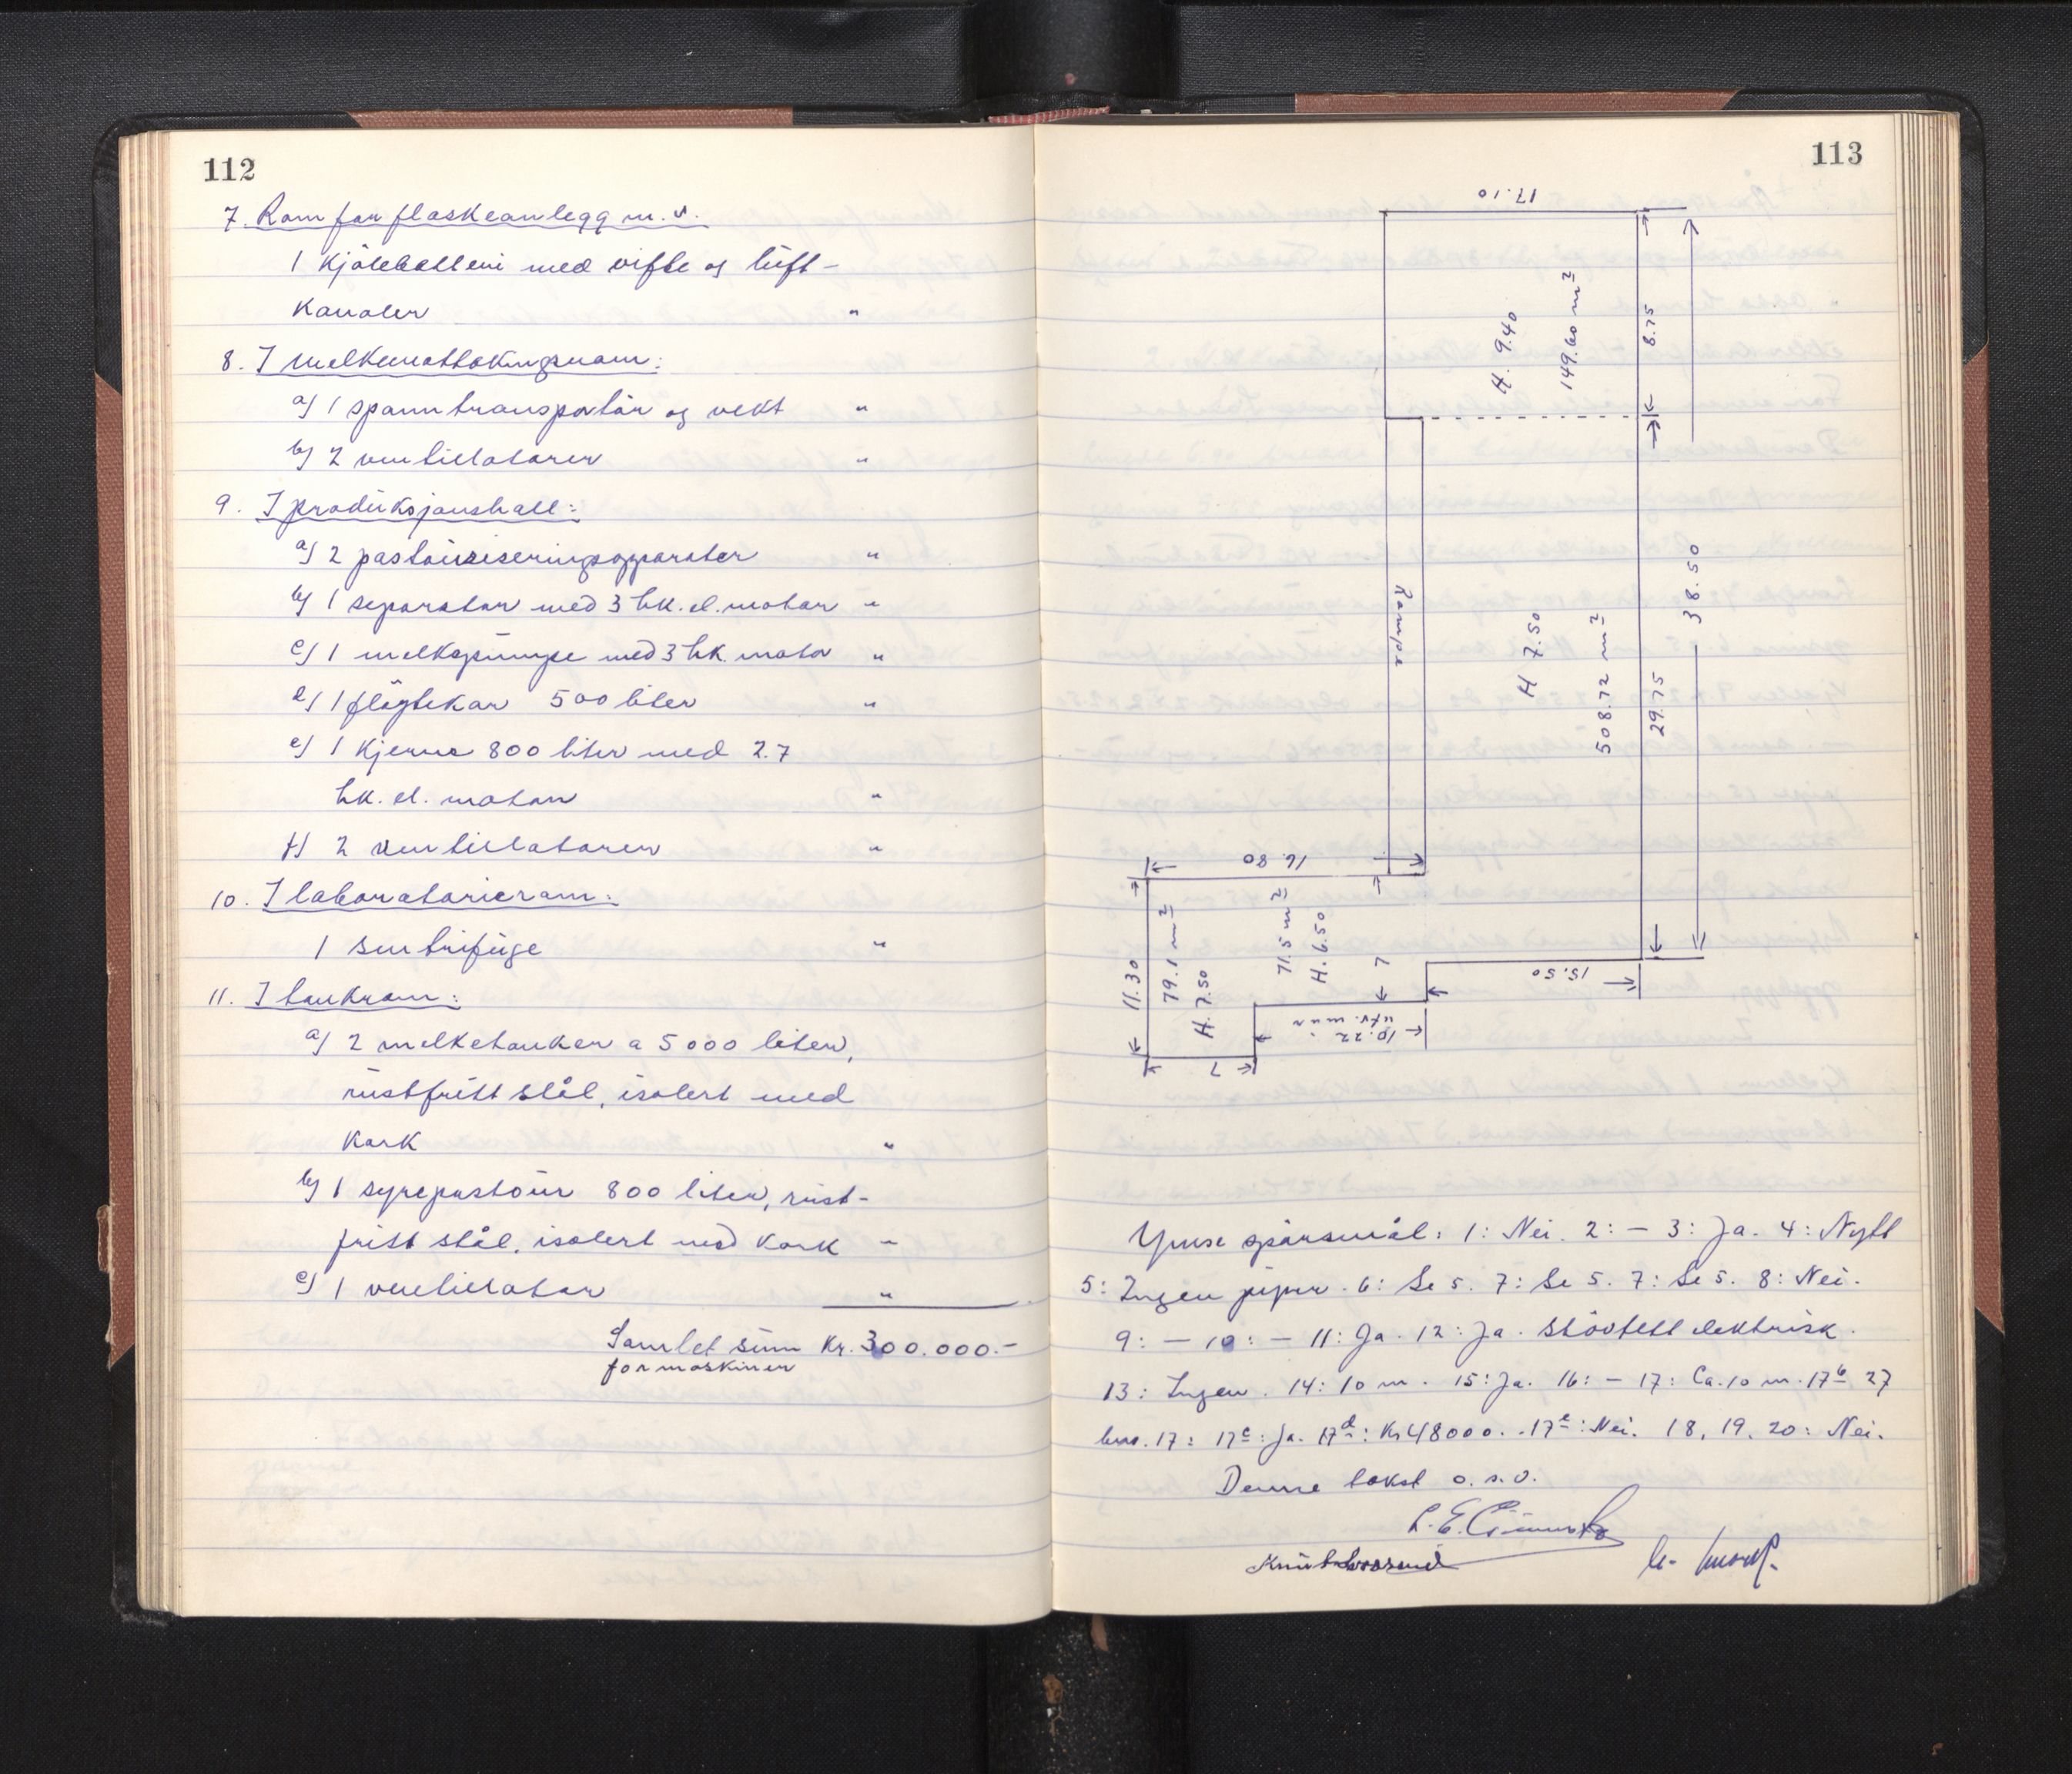 112
7. Rom for flaskeanlegg m. v.
1 Kjølebatteri med vifte og luft-
kanaler "
8. I melkemottakingsrom:
a) 1 spanntransportør og vekt "
b) 2 ventilatorer "
9. I produksjonshall:
a) 2 pastöuriseringsapparater "
b) 1 separator med 3 hk. el. motor "
c) 1 melkepumpe med 3 hk. motor "
d) 1 fløytekar 500 liter "
e) 1 Kjerne 800 liter med 2.7
hk. el. motor "
f) 2 ventilatorer "
10. I laboratorierom:
1 sentrifuge "
11. I tankrom:
a) 2 melketanker a 5000 liter,
rustfritt stål, isolert med
kork "
b) 1 syrepastöur 800 liter, rust-
fritt stål, isolert med kork "
c) 1 ventilator "
Samlet sum Kr. 300.000.-
for maskiner
113
17.10
H. 9.40
149.60 m²
8.75
38.50
Rampa
H 7.50
508.72 m²
29.75
16.80
11.30
79.1 m²
H. 7.50
71.5 m²
H. 6.50
7
15.50
10.22
utv. mur
7
Ymse spørsmål: 1: Nei. 2: – 3: Ja. 4: Nytt
5: Ingen piper. 6: Se 5. 7: Se 5. 7: Se 5. 8: Nei.
9: – 10: – 11: Ja. 12: Ja. støvtett elektrisk.
13: Ingen. 14: 10 m. 15: Ja. 16: – 17: Ca. 10 m. 17b 27
17: 17c: Ja. 17d: Kr 48000.- 17e: Nei. 18, 19, 20: Nei.
Denne takst o. s. v.